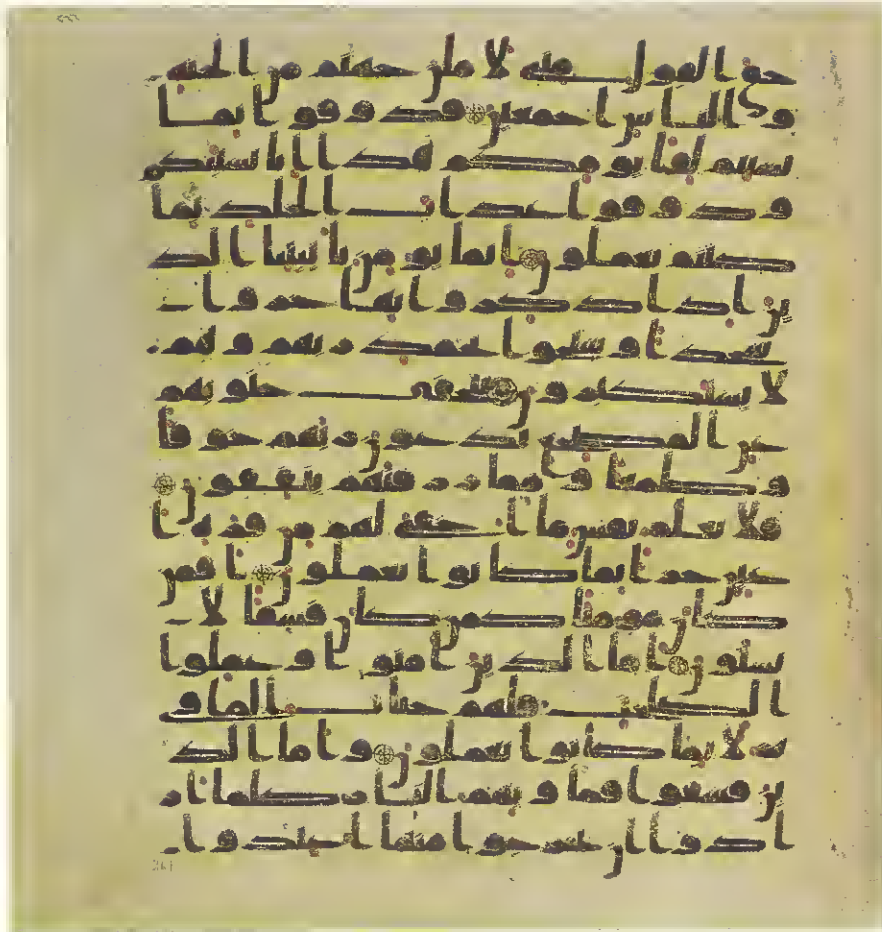 حق القول منى لاملن جهنم من الجنه
و الناس اجمعين فذوقوا بما
نسيتم لقا يومكم هذا انا نسينكم
وذوقوا عذاب الخلد بما
كنتم تعملون انما يومن بايتنا الذ
ين اذا ذكروا بها خروا
سجدا وسبحوا بحمد ربهم وهم
لا يستكبرون تتجافى جنوبهم
عن المضجع يدعون ربهم خوفا
وطمعا ومما رزقنهم ينفقون
فلا تعلم نفس ما اخفى لهم من قره ا
عين جزا بما كانوا يعملون افمن
كان مومنا كمن كان فسقا لا
يستون اما الذين امنوا وعملوا
الصلحت فلهم جنات الماو
ى نزلا بما كانوا يعملون واما الذ
ين فسقوا فماويهم النار كلما ار
ادوا ان يخرجوا منها اعيدوا